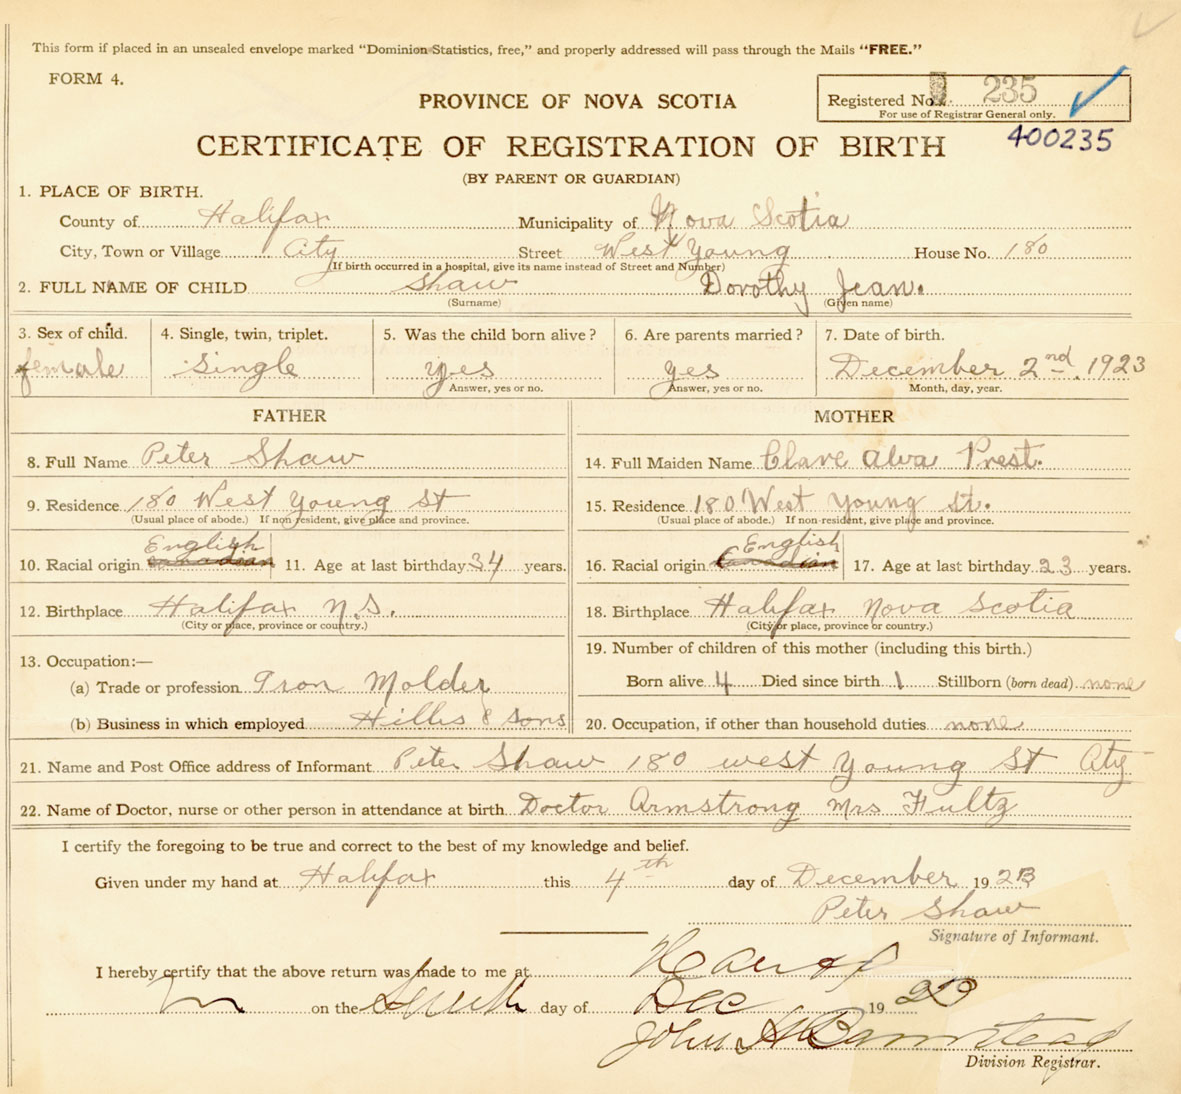 This form if placed in an unsealed envelope marked "Dominion Statistics, free," and properly addressed will pass through the Mails "FREE."
FORM 4.
Registered No. 235
For use of Registrar General only.
PROVINCE OF NOVA SCOTIA
400235
CERTIFICATE OF REGISTRATION OF BIRTH
(BY PARENT OR GUARDIAN)
1. PLACE OF BIRTH.
County of Halifax Municipality of Nova Scotia
City, Town or Village City Street West Young House No. 180
(If birth occurred in a hospital, give its name instead of Street and Number)
2. FULL NAME OF CHILD Shaw Dorothy Jean.
(Surname) (Given name)
3. Sex of child. 4. Single, twin, triplet. 5. Was the child born alive? 6. Are parents married? 7. Date of birth.
female Single yes yes December 2nd. 1923
Answer, yes or no. Answer, yes or no. Month, day, year.
FATHER MOTHER
8. Full Name Peter Shaw 14. Full Maiden Name Clare Alva Prest.
9. Residence 180 West Young St 15. Residence 180 West Young St.
(Usual place of abode.) If non resident, give place and province. (Usual place of abode.) If non-resident, give place and province.
English English
10. Racial origin Canadian 11. Age at last birthday 34 years. 16. Racial origin Canadian 17. Age at last birthday 23 years.
12. Birthplace Halifax N.S. 18. Birthplace Halifax Nova Scotia
(City or place, province or country.) (City or place, province or country.)
13. Occupation:— 19. Number of children of this mother (including this birth.)
(a) Trade or profession Iron Molder Born alive 4 Died since birth 1 Stillborn (born dead) none
(b) Business in which employed Hillis & Sons 20. Occupation, if other than household duties none
21. Name and Post Office address of Informant Peter Shaw 180 west Young St City
22. Name of Doctor, nurse or other person in attendance at birth Doctor Armstrong Mrs Fultz
I certify the foregoing to be true and correct to the best of my knowledge and belief.
Given under my hand at Halifax this 4th day of December 1923
Peter Shaw
Signature of Informant.
I hereby certify that the above return was made to me at
on the day of Dec 19
John
Division Registrar.